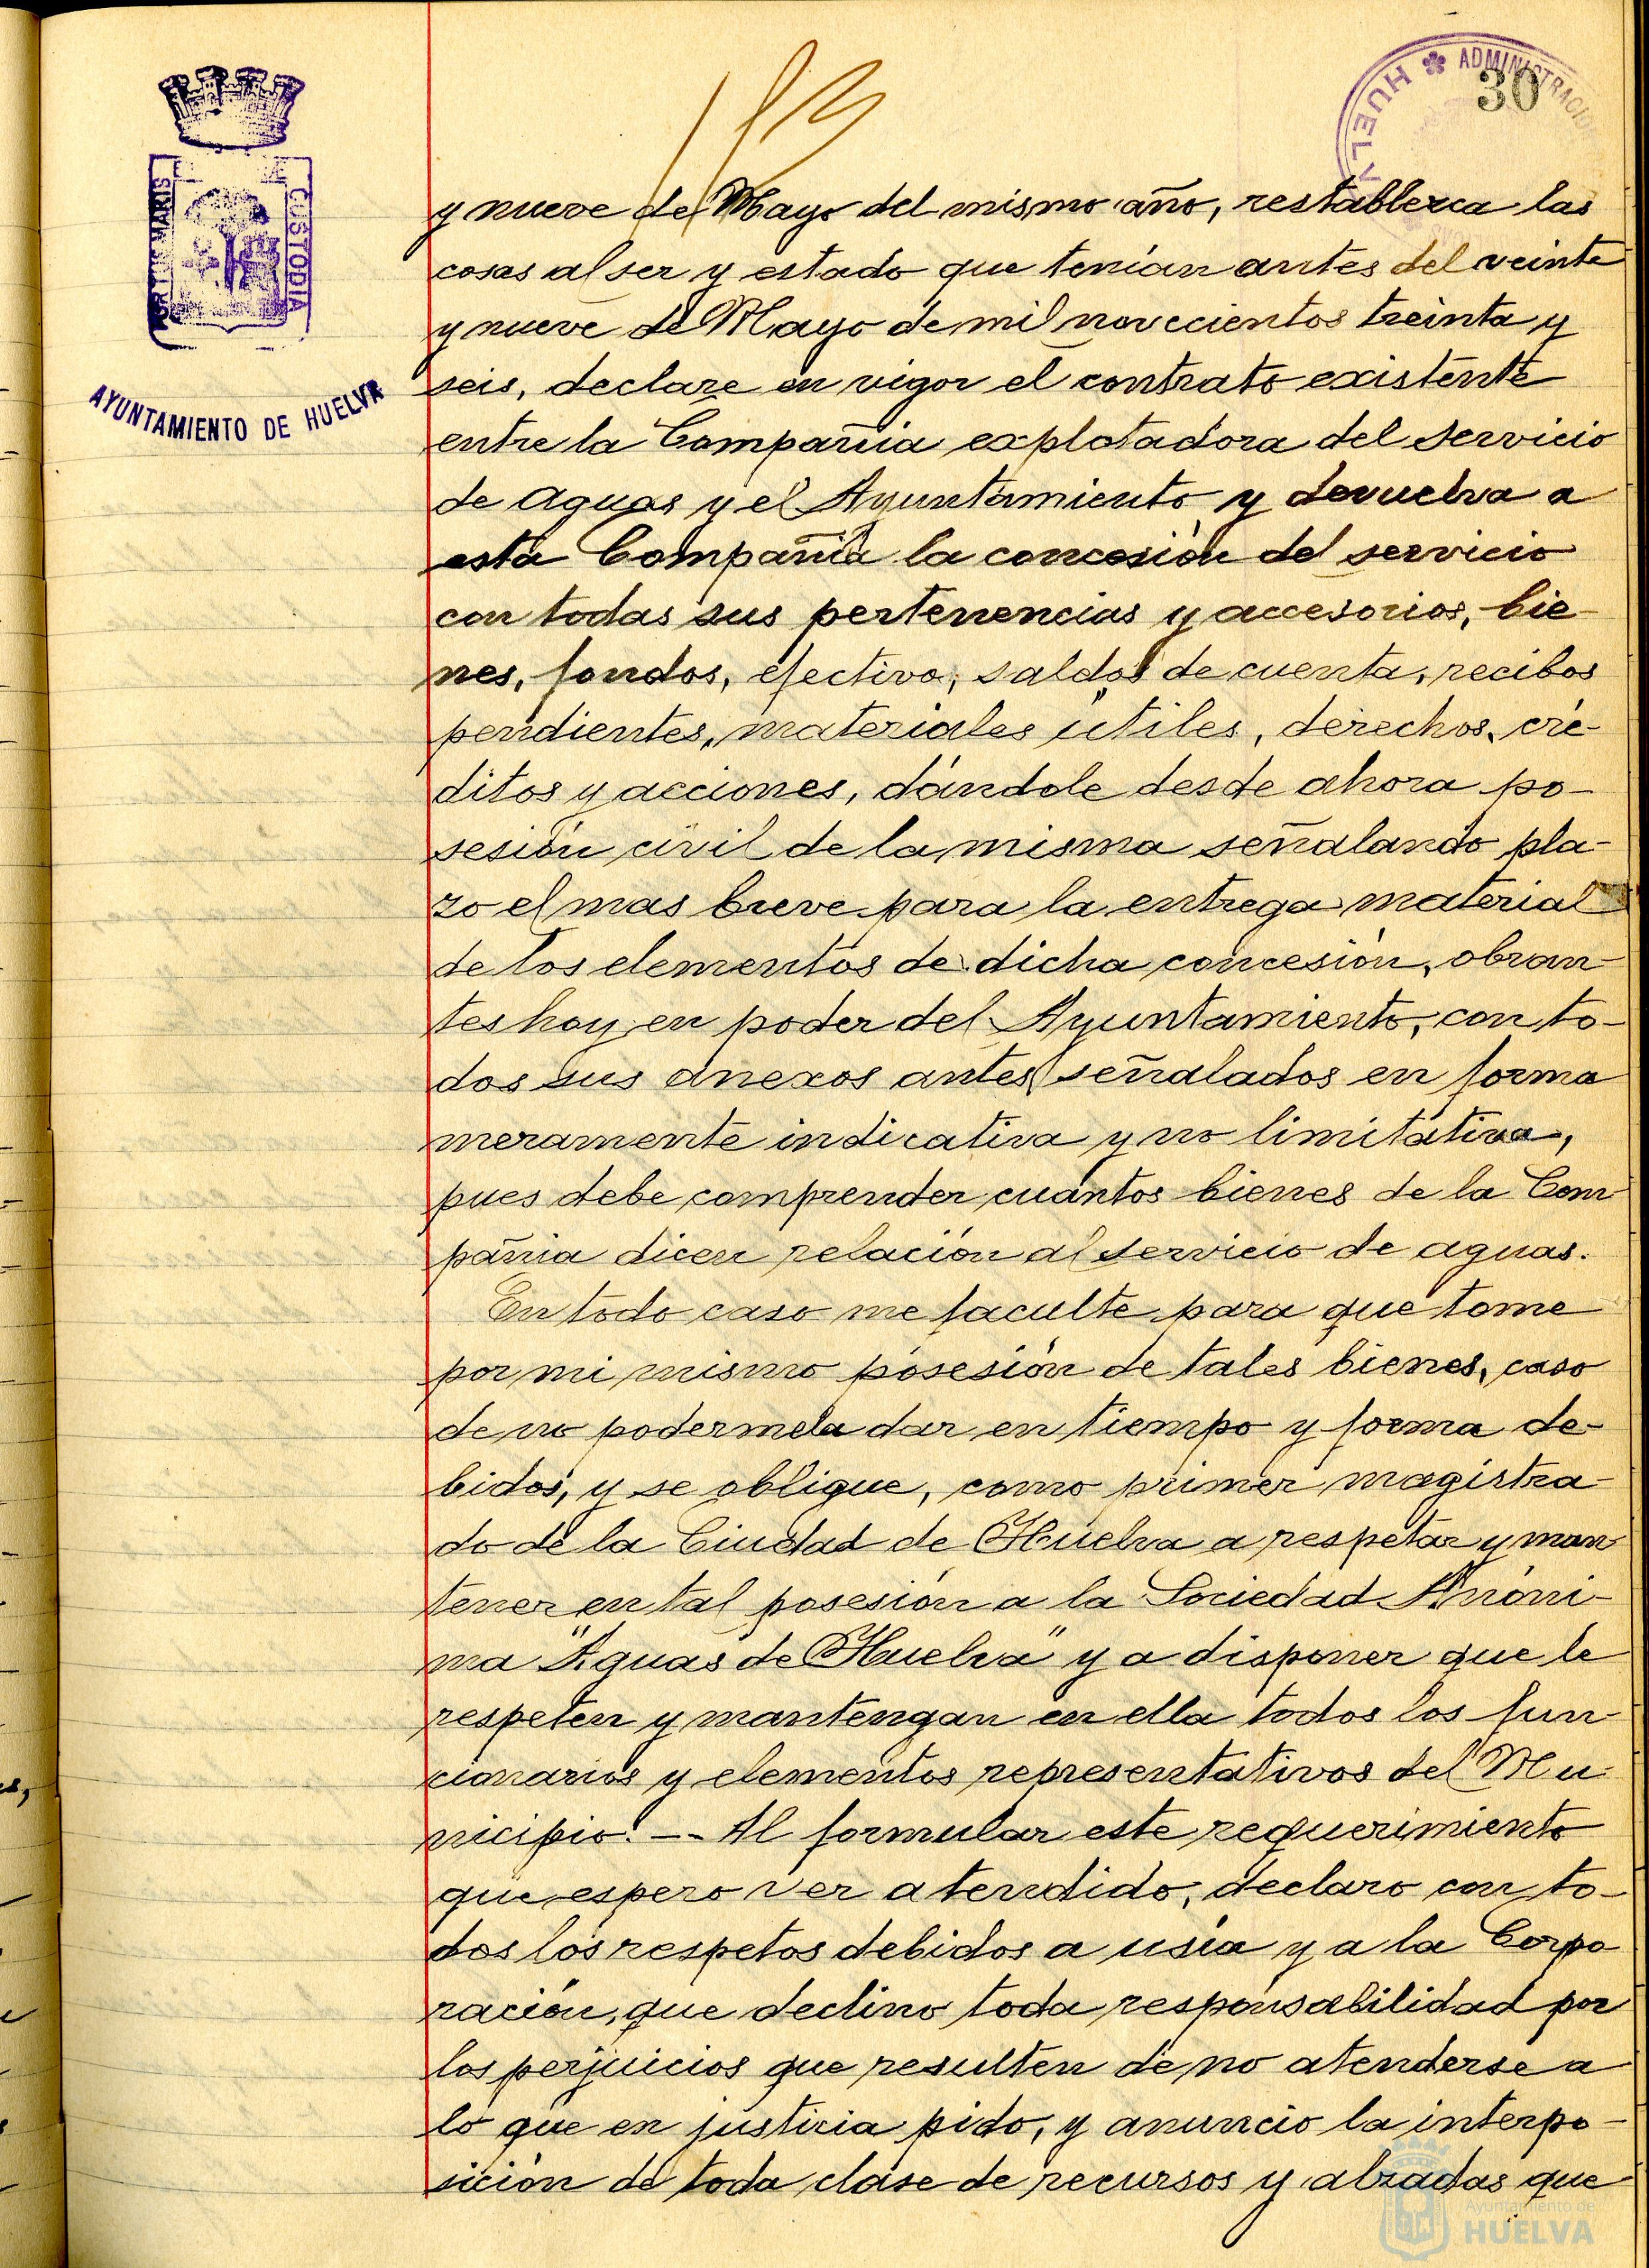 ADMINISTRACIÓN
HUELVA
30
PORTUS MARIS
CUSTODIA
AYUNTAMIENTO DE HUELVA
y nueve de Mayo del mismo año, restablezca las
cosas al ser y estado que tenían antes del veinte
y nueve de Mayo de mil novecientos treinta y
seis, declare en vigor el contrato existente
entre la Compañia explotadora del servicio
de aguas y el Ayuntamiento y devuelva a
esta Compañia la concesión del servicio
con todas sus pertenencias y accesorios, bie-
nes, fondos, efectivo, saldos de cuenta, recibos
pendientes, materiales útiles, derechos, cré-
ditos y acciones, dándole desde ahora po-
sesión civil de la misma señalando pla-
zo el mas breve para la entrega material
de los elementos de dicha concesión, obran-
tes hoy en poder del Ayuntamiento, con to-
dos sus anexos antes señalados en forma
meramente indicativa y no limitativa,
pues debe comprender cuantos bienes de la Com
pañia dicen relación al servicio de aguas.
En todo caso me faculte para que tome
por mi mismo posesión de tales bienes, caso
de no podermela dar en tiempo y forma de-
bidos, y se obligue, como primer magistra-
do de la Ciudad de Huelva a respetar y man
tener en tal posesión a la Sociedad Anóni-
ma "Aguas de Huelva" y a disponer que le
respeten y mantengan en ella todos los fun-
cionarios y elementos representativos del Mu-
nicipio. -- Al formular este requerimiento
que espero ver atendido, declaro con to-
dos los respetos debidos a usía y a la Corpo
ración, que declino toda responsabilidad por
los perjuicios que resulten de no atenderse a
lo que en justicia pido, y anuncio la interpo-
sición de toda clase de recursos y alzadas que
Ayuntamiento de
HUELVA